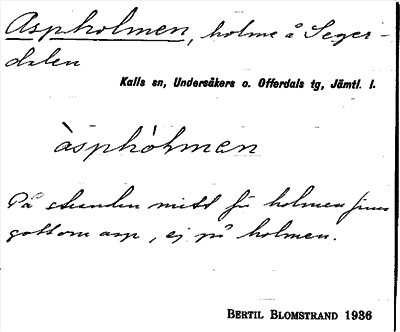 Aspholmen, holme å Seger-
dalen
Kalls sn, Undersåkers o. Offerdals tg, Jämtl. l.
àsphòhmen
På stranden mitt för holmen finns
gott om asp, ej på holmen.
BERTIL BLOMSTRAND 1936